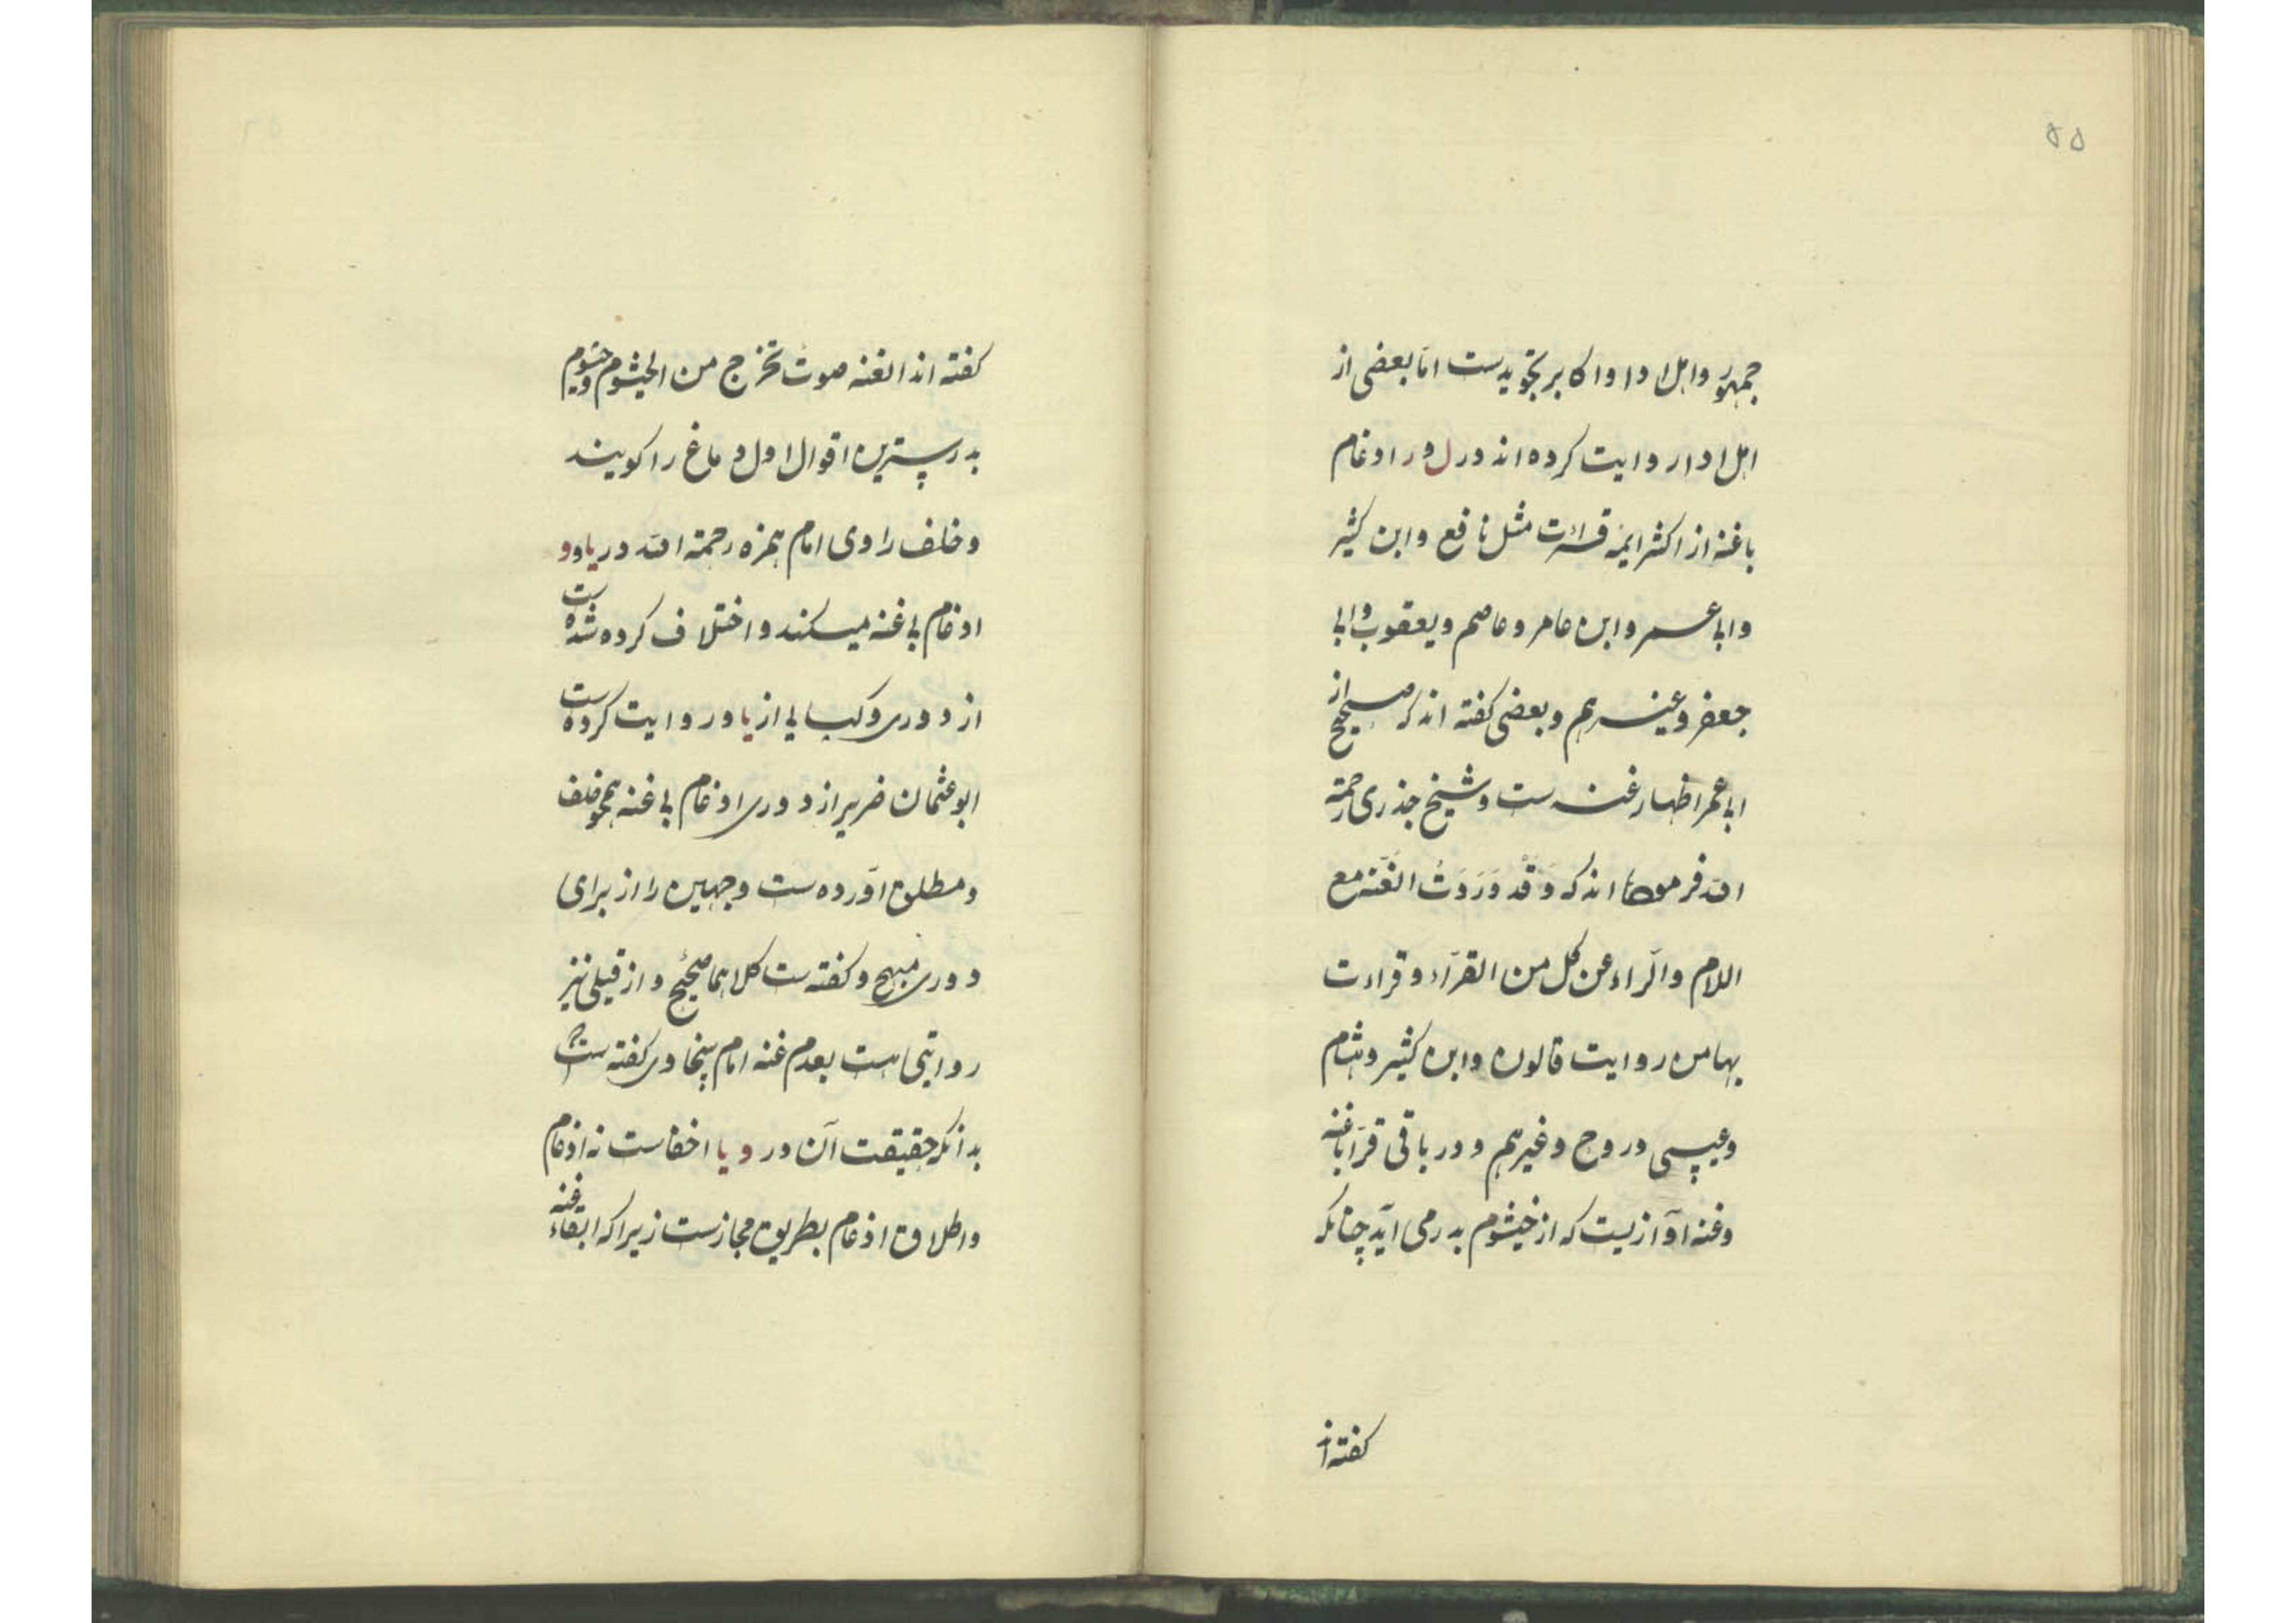 ۵۵
جمهور و اهل ادا و اکابر تجویدست امّا بعضی از
اهل ادا روایت کرده اند در ل و ر ادغام
با غنه از اکثر ایمّه قرائت مثل نافع و ابن کثیر
و ابی عمر و ابن عامر و عاصم و یعقوب و ابی
جعفر و غیرهم و بعضی گفته اند که صحیح از
ابی عمر اظهار غنه ست و شیخ جذری رحمة
الله فرموده اند که وَقَد وَرَدَتْ الغنّه مع
اللام والرّاء عن کل من القرّاء و قراءت
بها من روایت قالون وابن کثیر و هشام
وعیسی در وج و غیرهم و در باقی قرّا با غنه
وغنه آوازیست که از خیشوم بدر می آید چنانکه
گفته اند
گفته اند الغنه صوت تخرج من الخیشوم و خیشوم
بدرسترین اقوال اول دماغ را گویند
و خلف راوی امام همزه رحمة الله در یا و و
ادغام بی غنه میکند و اختلاف کرده شده ست
از دوری و کسایی از یا و روایت کرده ست
ابو عثمان ضریر از دوری ادغام بی غنه همچو خلف
و مطلق آورده ست وجهین را از برای
دوری مبهج و گفته ست کلاهما صحیح و از قیلی نیز
روایتی هست بعدم غنه امام سخاوی گفته ست که
بدانکه حقیقت آن در و یا اخفاست نه ادغام
و اطلاق ادغام بطریق مجازست زیرا که ابقاء غنه